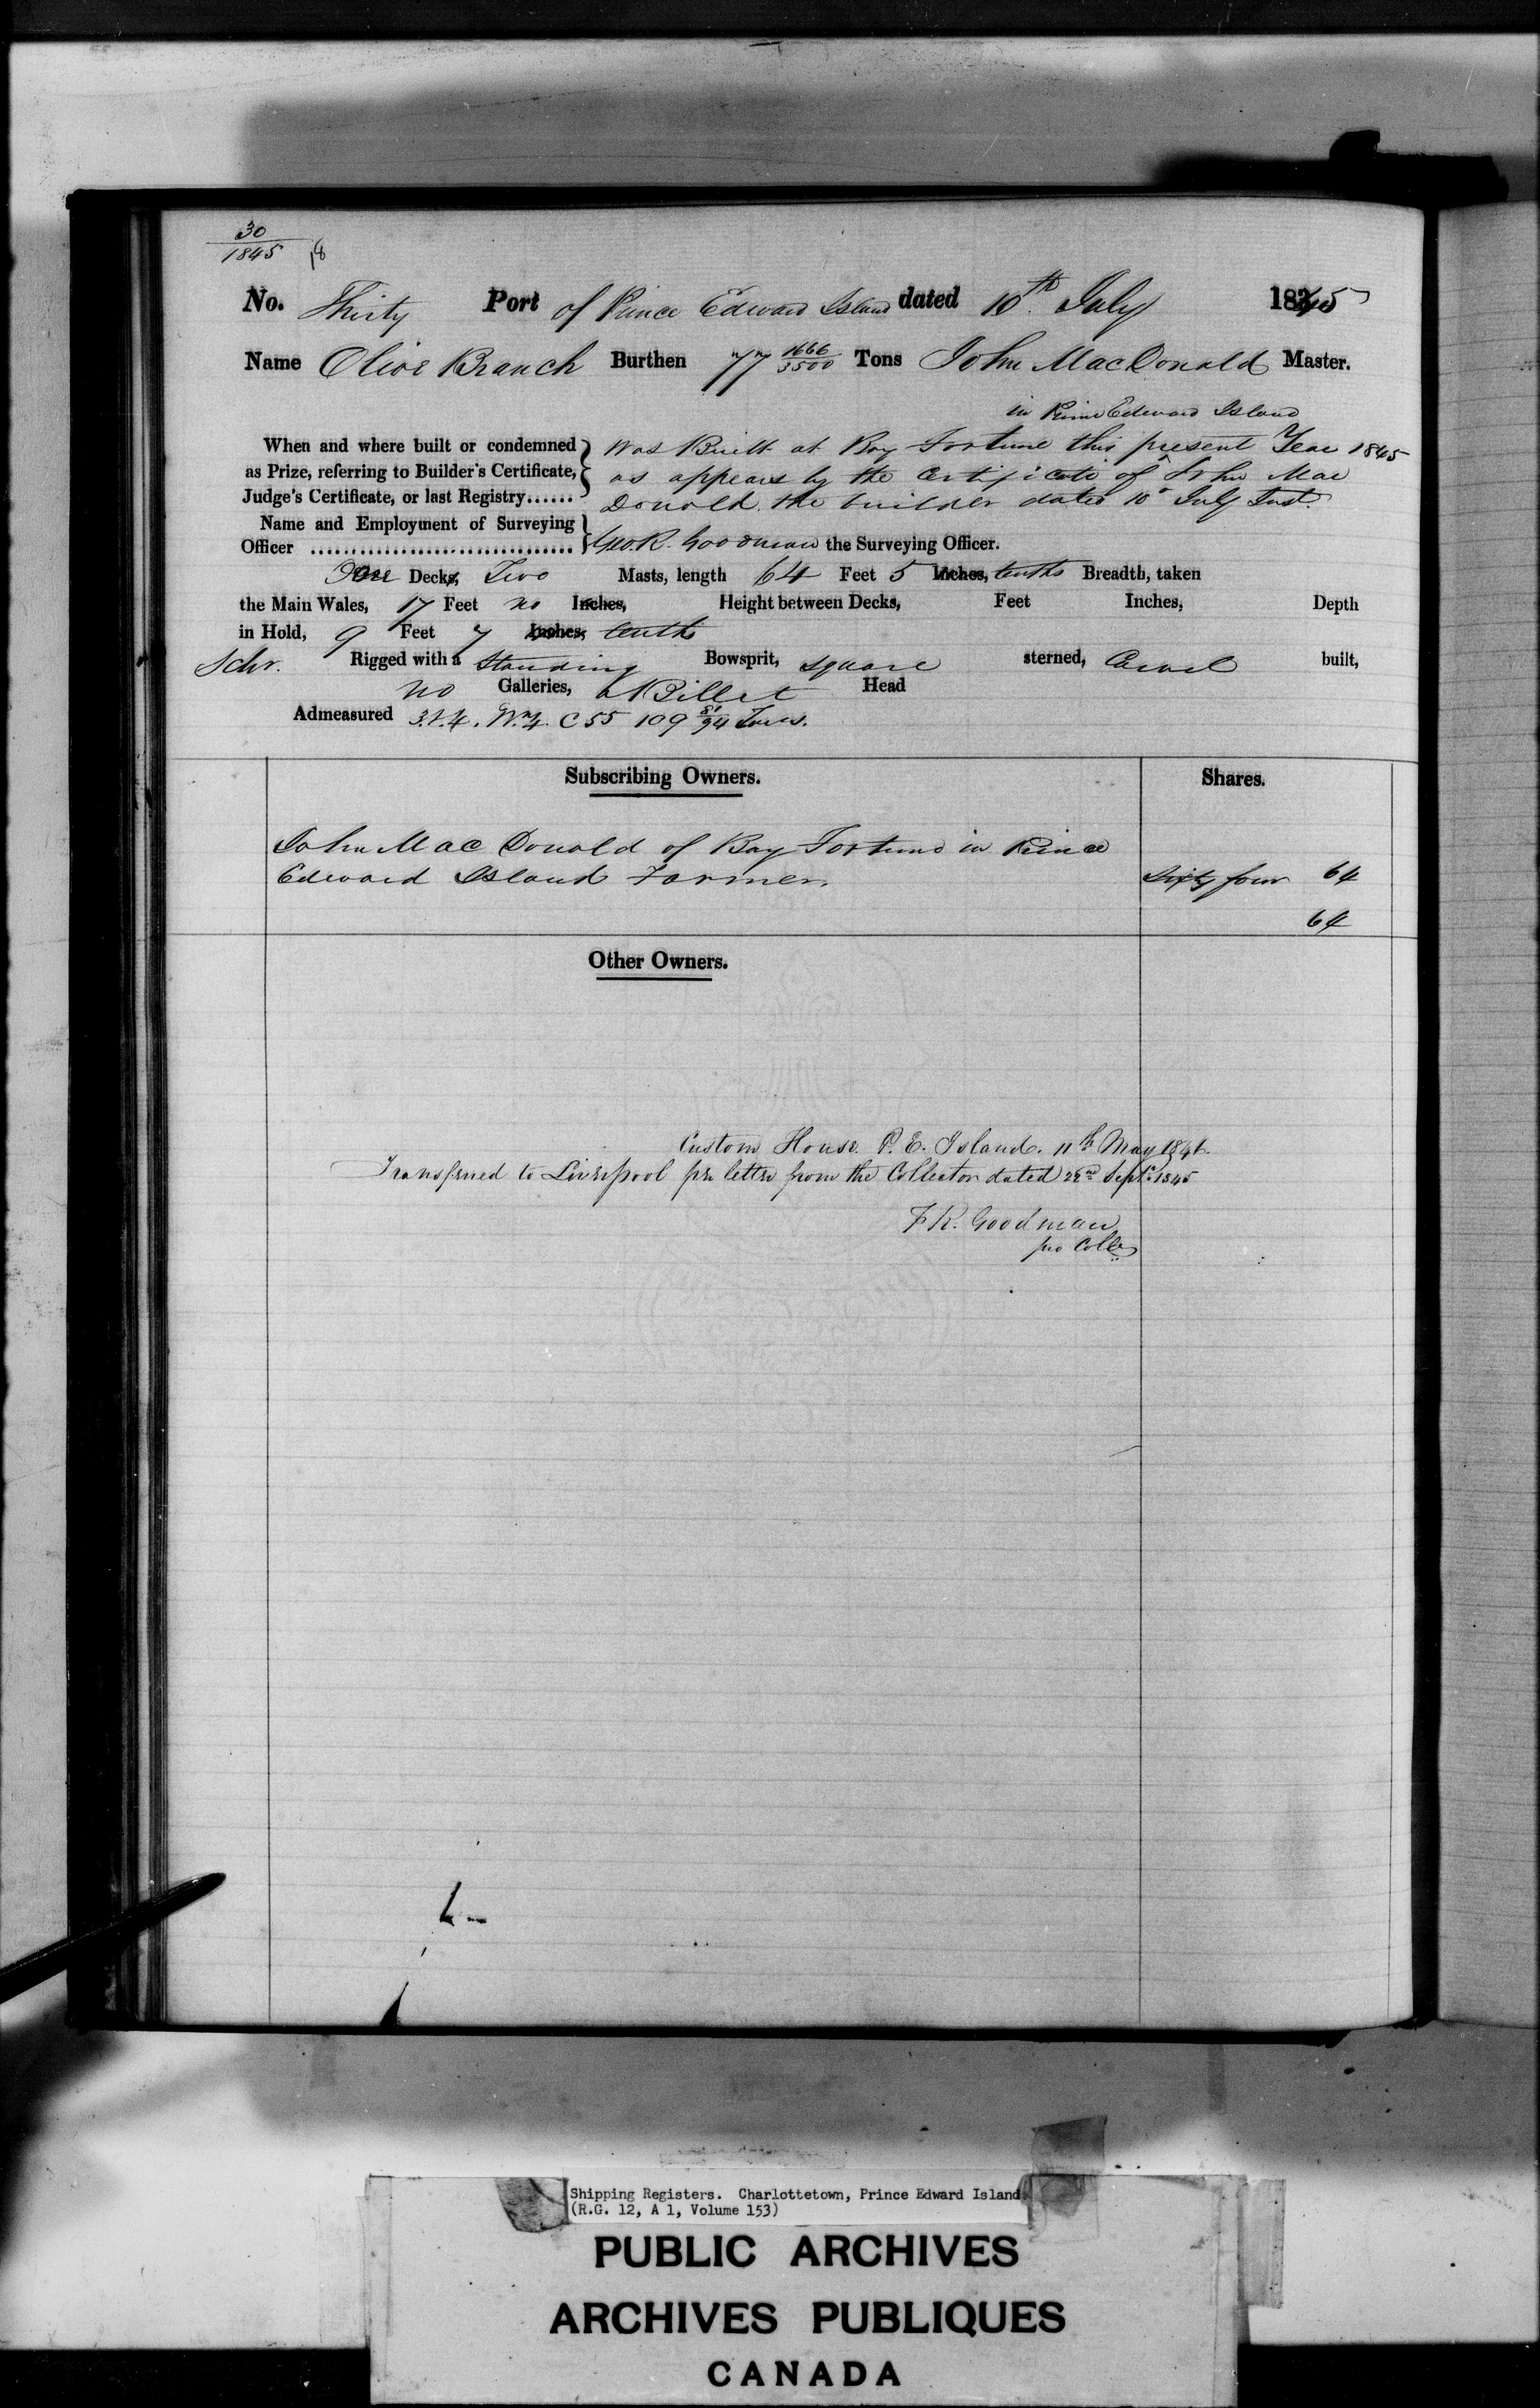 30
1845
No. Thirty Port of Prince Edward Island dated 10th July 1845
Name Olive Branch Burthen 77 1666/3500 Tons John MacDonald Master.
in Prince Edward Island
When and where built or condemned as Prize, referring to Builder's Certificate, Judge's Certificate, or last Registry......
was Built at Bay Fortune this present Year 1845
as appears by the Certificate of John Mac
Donald the builder dated 10th July Inst.
Name and Employment of Surveying
Officer ................................ Geo. R. Goodman the Surveying Officer.
One Decks, Two Masts, length 64 Feet 5 Inches, tenths Breadth, taken
the Main Wales, 17 Feet no Inches, Height between Decks, Feet Inches, Depth
in Hold, 9 Feet 7 Inches, tenths
Schr. Rigged with a Standing Bowsprit, square sterned, Carvel built,
no Galleries, a Billet Head
Admeasured 3. & 4. Wm. 4. C 55 109 81/94 Tons.
Subscribing Owners. Shares.
John Mac Donald of Bay Fortune in Prince
Edward Island Farmer. Sixty four 64
64
Other Owners.
Custom House P. E. Island. 11th May 1846.
Transferred to Liverpool per letter from the Collector dated 22nd Septr. 1845
F R. Goodman
pro Collr
Shipping Registers. Charlottetown, Prince Edward Island
(R.G. 12, A 1, Volume 153)
PUBLIC ARCHIVES
ARCHIVES PUBLIQUES
CANADA